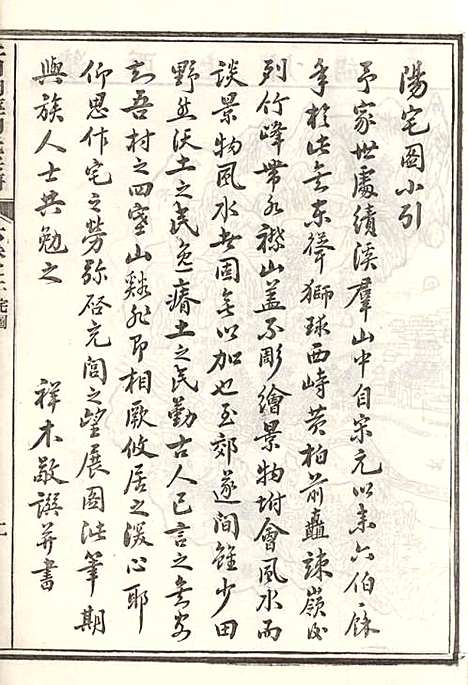 陽宅圖小引
予家世處績溪羣山中自宋元以來六伯餘
年於此矣東聳獅球西峙黃柏前矗竦嶺後
列竹峰帶水襟山蓋不彫繪景物坿會風水而
談景物風水者固無以加也至郊遂間雖少田
野然沃土之民逸瘠土之民勤古人已言之矣安
知吾村之四塞山谿非即相厥攸居之深心耶
仰思作宅之勞彌啓亢閭之望展圖泚筆期
與族人士共勉之
祥木敬譔并書
宅圖